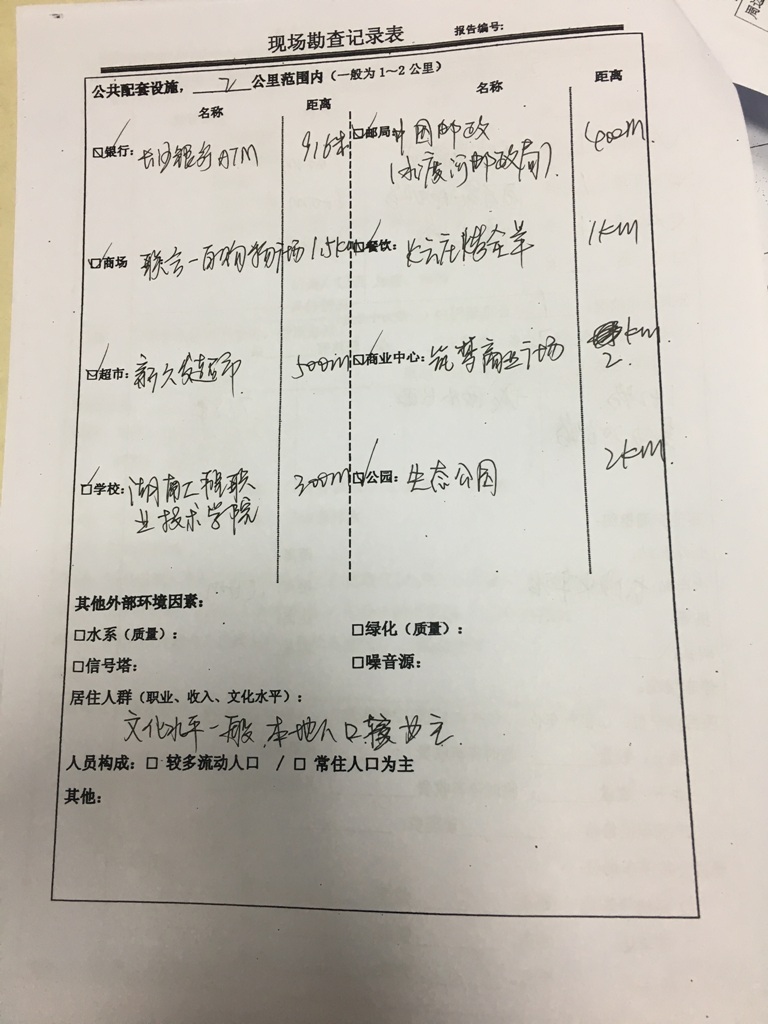 现场勘查记录表 报告编号:
公共配套设施, 2 公里范围内(一般为1~2公里)
名称 距离 名称 距离
☑银行: 长沙银行ATM 916米 ☑邮局: 中国邮政 400m
(水渡河邮政局)
☑商场 联合一百购物广场 1.5km ☑餐饮: 烤全羊 1km
☑超市: 新久发超市 500m ☑商业中心: 筑梦商业广场 km
2.
☑学校: 湖南工程职 300m ☑公园: 生态公园 2km
业技术学院
其他外部环境因素:
☐水系(质量): ☐绿化(质量):
☐信号塔: ☐噪音源:
居住人群(职业、收入、文化水平):
文化水平一般,本地人口为主.
人员构成: ☐ 较多流动人口 / ☐ 常住人口为主
其他: